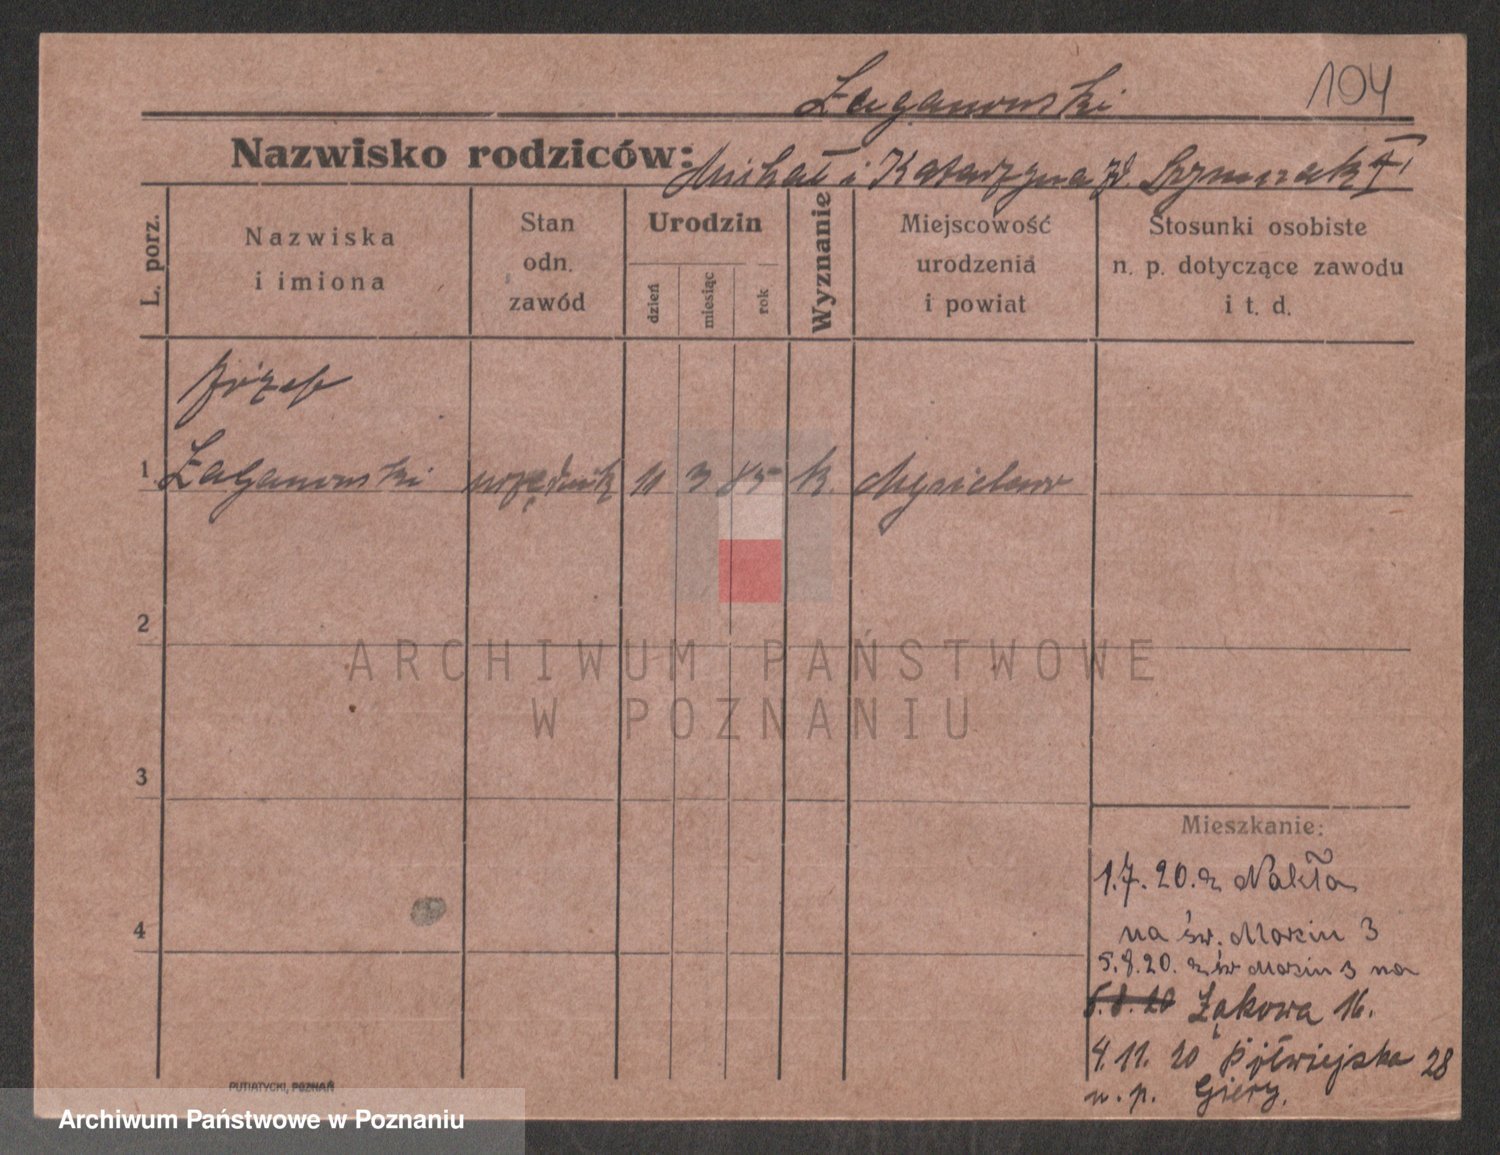 Łaganowski 104
Nazwisko rodziców: Michał i Katarzyna zd. Szymczak
L. porz.
Nazwiska
i imiona
Stan
odn.
zawód
Urodzin
dzień
miesiąc
rok
Wyznanie
Miejscowość
urodzenia
i powiat
Stosunki osobiste
n. p. dotyczące zawodu
i t. d.
Józef
1 Łaganowski urzędnik 11 3 85 k.
2
ARCHIWUM PAŃSTWOWE
W POZNANIU
3
Mieszkanie:
1.7.20. z Nakła
na św. Marcin 3
4
5.8.20. z św Marcin 3 na
5.8.20 Łąkowa 16.
4.11.20 Półwiejska 28
u. p. Giery.
PUTIATYCKI, POZNAŃ
Archiwum Państwowe w Poznaniu